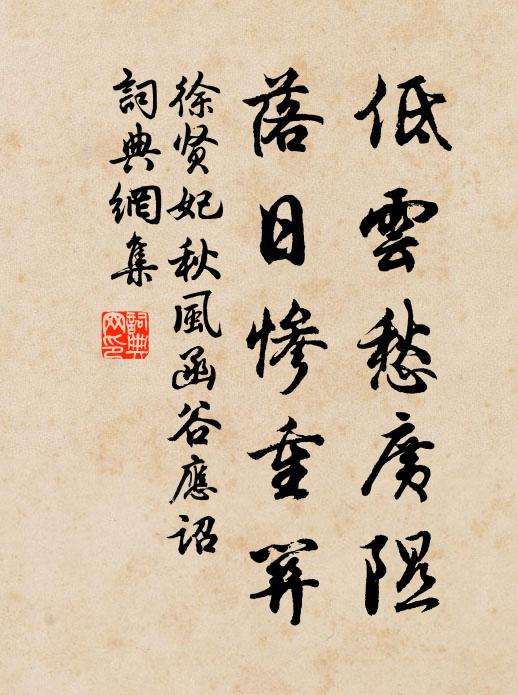 低雲愁廣隰
落日慘重關
徐贤妃秋風函谷應詔
詞典網集
詞典网印